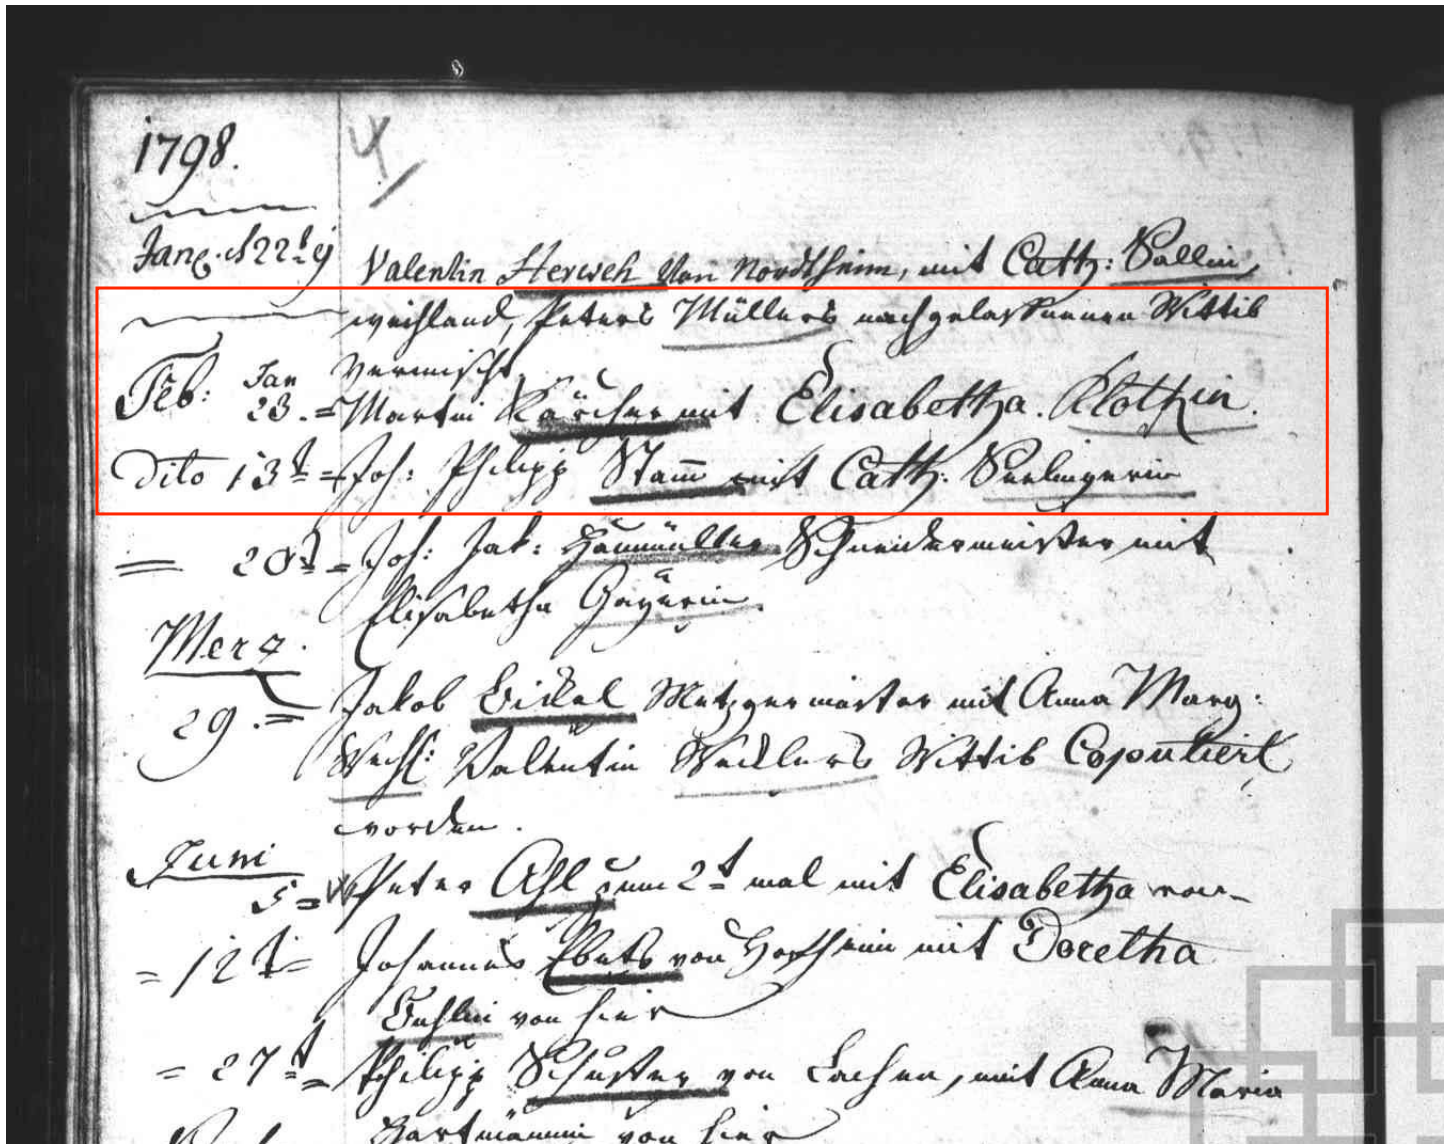 1798.
Jan. d 22t Valentin Herweh von Nordtheim, mit Cath:
weihland, Peters Müllers nachgelassenen Wittib
vermischt
Feb: Jan 23. = Martin Kärcher mit Elisabetha. Klotzin.
Dito 13t = Joh: Philipp Stam̄ mit Cath: Seelingerin
= 20t = Joh: Jak: Schneidermeister mit
Elisabetha
Merz.
29. = Jakob Bickel Metzgermeister mit Anna Marg:
Valentin Wittib Copuliert
worden.
Juni
5 = Peter Ahl zum 2t mal mit Elisabetha
= 12t = Johannes von Hofheim mit Doretha
von hier
= 27t = Philipp Schuster von Lachen, mit Anna Maria
Hartmännin von hier